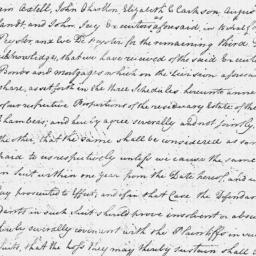 Astell, John Charlton, Elizabeth C Clarkson, August
and John Jay Executors aforesaid, in behalf
Peyster, and We De Peyster for the remaining third
acknowledge, that we have received of the said Execut
Bonds and mortgages which on the Division aforesai
share, as set forth in the three Schedules hereunto annex
of our respective Proportions of the residuary Estate of the
Chambers; and hereby agree severally and not jointly
the other, that the same shall be considered as
hard to us respectively unless we cause the same
in Suit within one year from the Date hereof, and
ay prosecuted to Effect; and if in that Case the Defendan
dants in such Suit should prove insolvent or absco
hereby severally covenant with the Plaintiffs in
Suits, that the loss they may thereby sustain shall